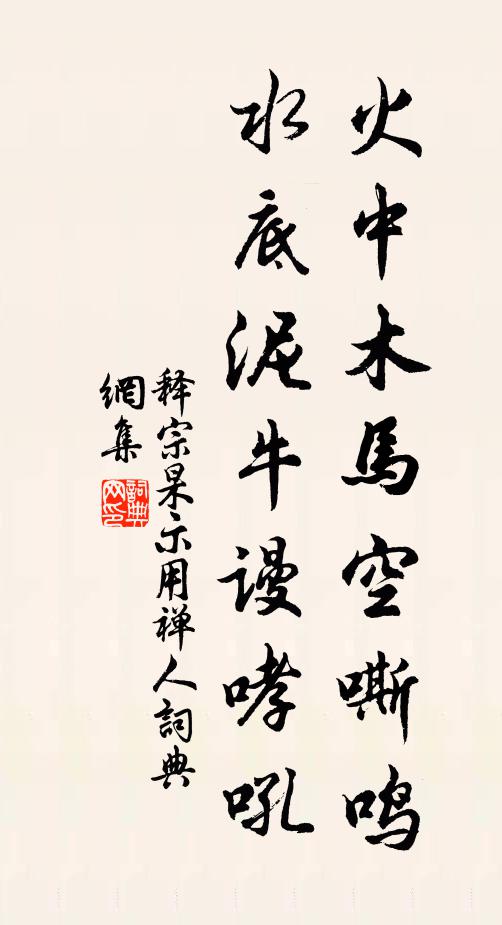 火中木馬空嘶鸣
水底泥牛谩哮吼
释宗杲示用禅人詞典
網集
詞典網印